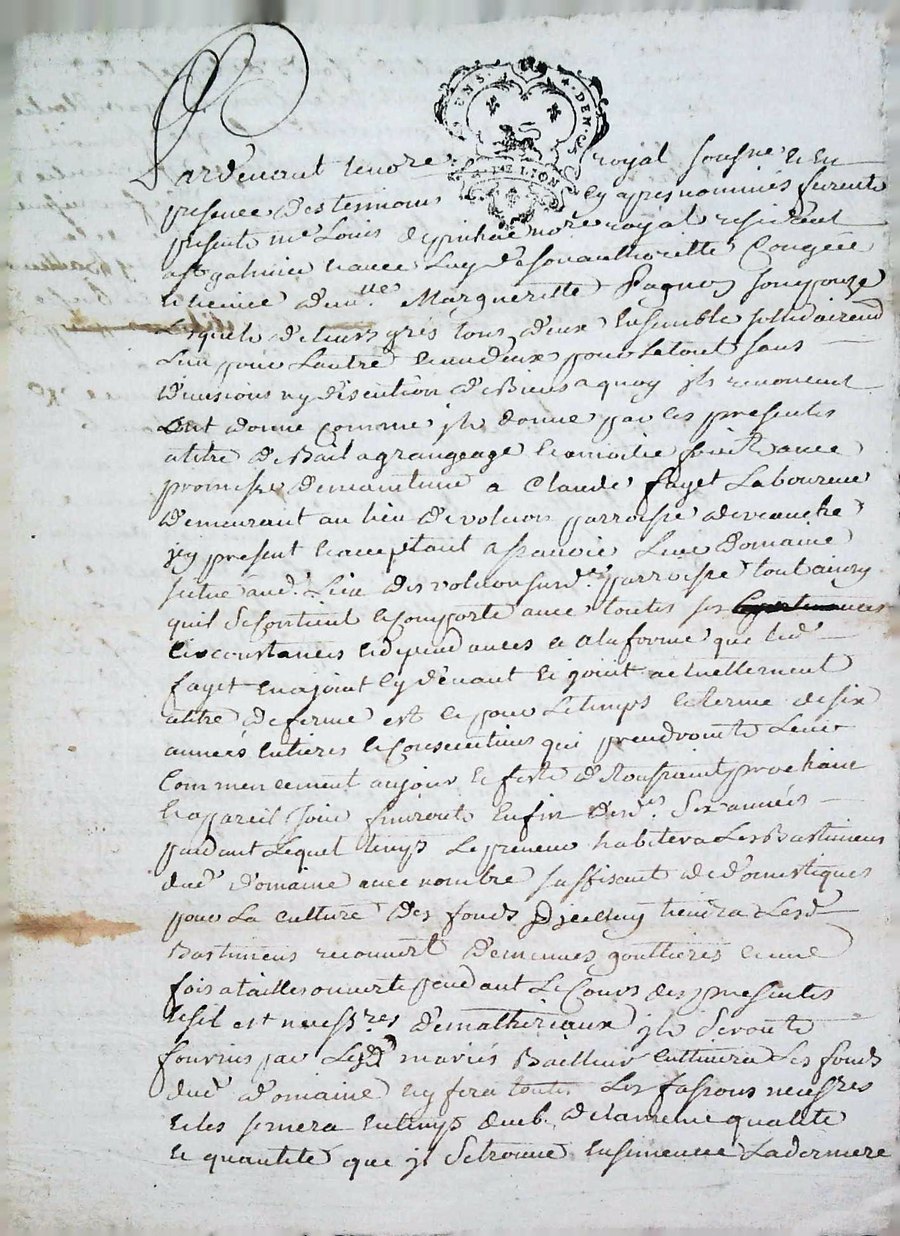 DEUX SOLS DEN
G DE LION
Pardevant le no.re royal soussigné et en
presence des temoins cy apres nommés furent
presents m.e Louis no.re royal residant
a S.t galmier et avec Luy de son authorité Congée
et licence d.em.lle Margueritte Pagnon son epouze
Lesquels de leurs grés tous deux Ensemble sollidairem.t
L'un pour L'autre et un d'eux pour Le tout sans
divisions ny discution de Biens a quoy jls renoncent
ont donné comme jls donnent par ces presentes
a titre de Bail a grangeage et a moitié fruit avec
promesse de maintenir a Claude fayet Laboureur
demeurant au lieu de volvon parroisse de veauche
jcy present et acceptant a sçavoir Leur domaine
situé aud. Lieu des volvon susd.e parroisse tout ainsy
qu'il se contient et comporte avec toutes ses
circonstances et dependances et a la forme que led.
fayet en a joüit cy devant et joüit actuellement
a titre de ferme est ce pour Le temps et terme de six
années Entieres et Consecutives qui prendront Leur
Commencement au jour et feste de Toussaint prochain
et a pareil Jour finiront Enfin desd.es Six années
pendant Lequel temps Le preneur habitera Les Bastimens
dud. domaine avec nombre suffisant de domestiques
pour La culture des fonds D'icelluy tiendra Lesd.
Bastimens recouvert de menues gouttieres et une
fois a tailles ouverte pendant Le Cours des presentes
et s'il est necess.res de matheriaux jls Seront
fournis par Lesd. mariés Bailleur cultivera Les fonds
dud. domaine et y fera toutes Les fassons necess.res
et les semera En temps de la meme qualité
et quantité que jl Se trouve Ensemencé La derniere